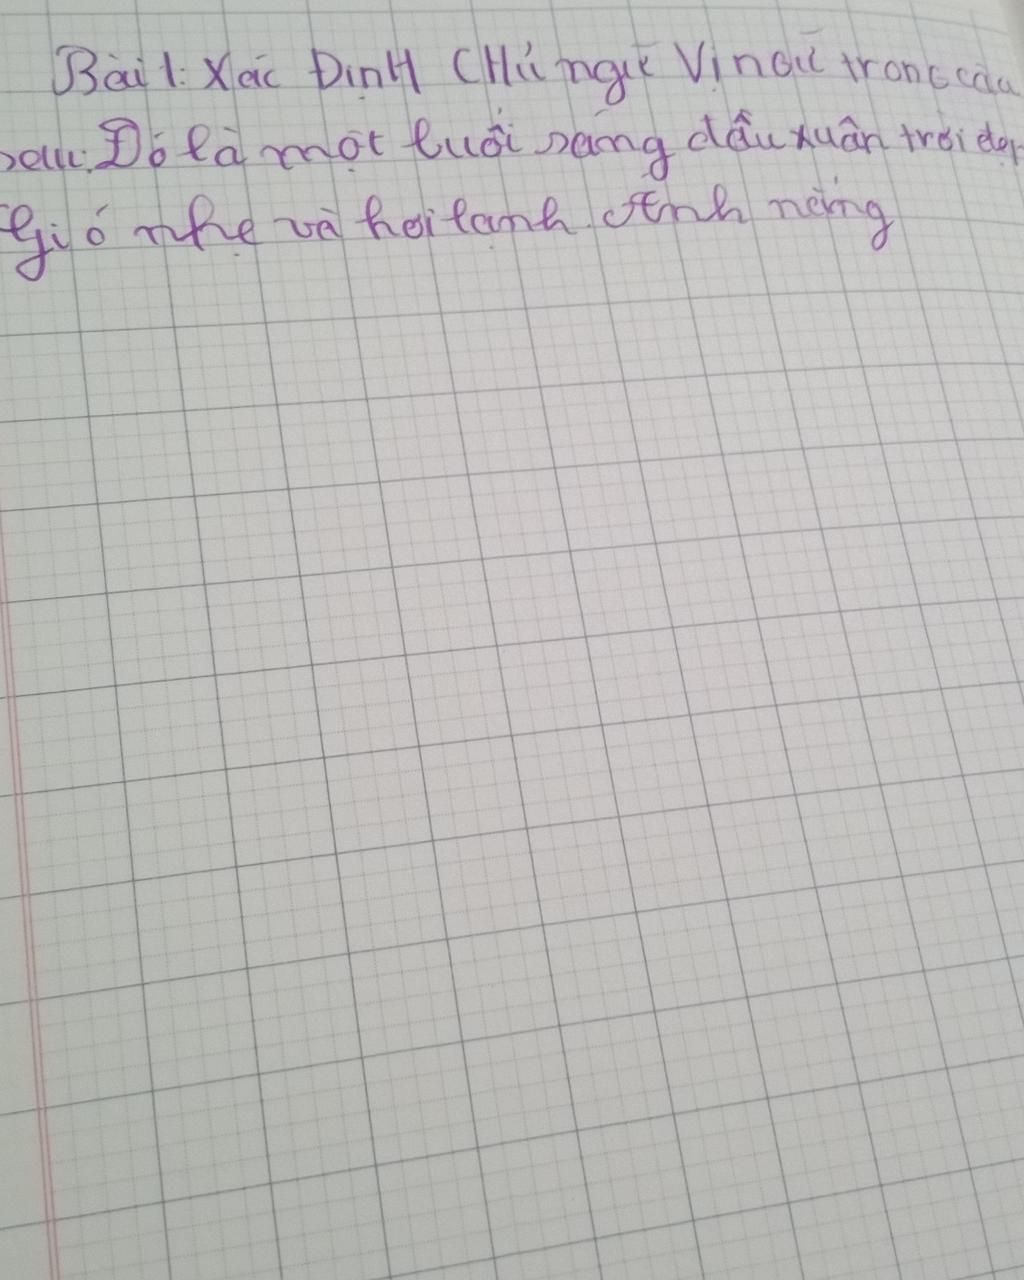 Bài 1: Xác Định Chủ ngữ Vị ngữ trong câu
sau: Đó là một buổi sáng đầu xuân trời đẹp
Gió nhẹ và hơi lạnh. Ánh nắng